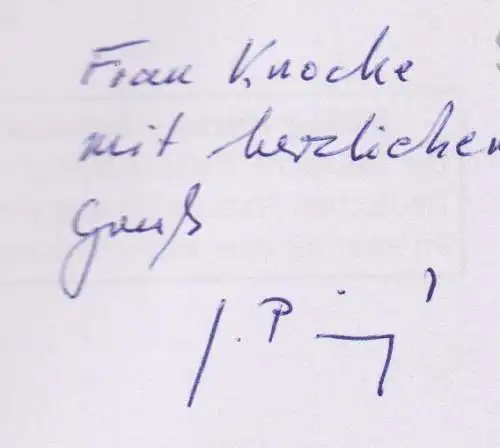 Frau Knocke
mit herzlichem
Gruß
J. P